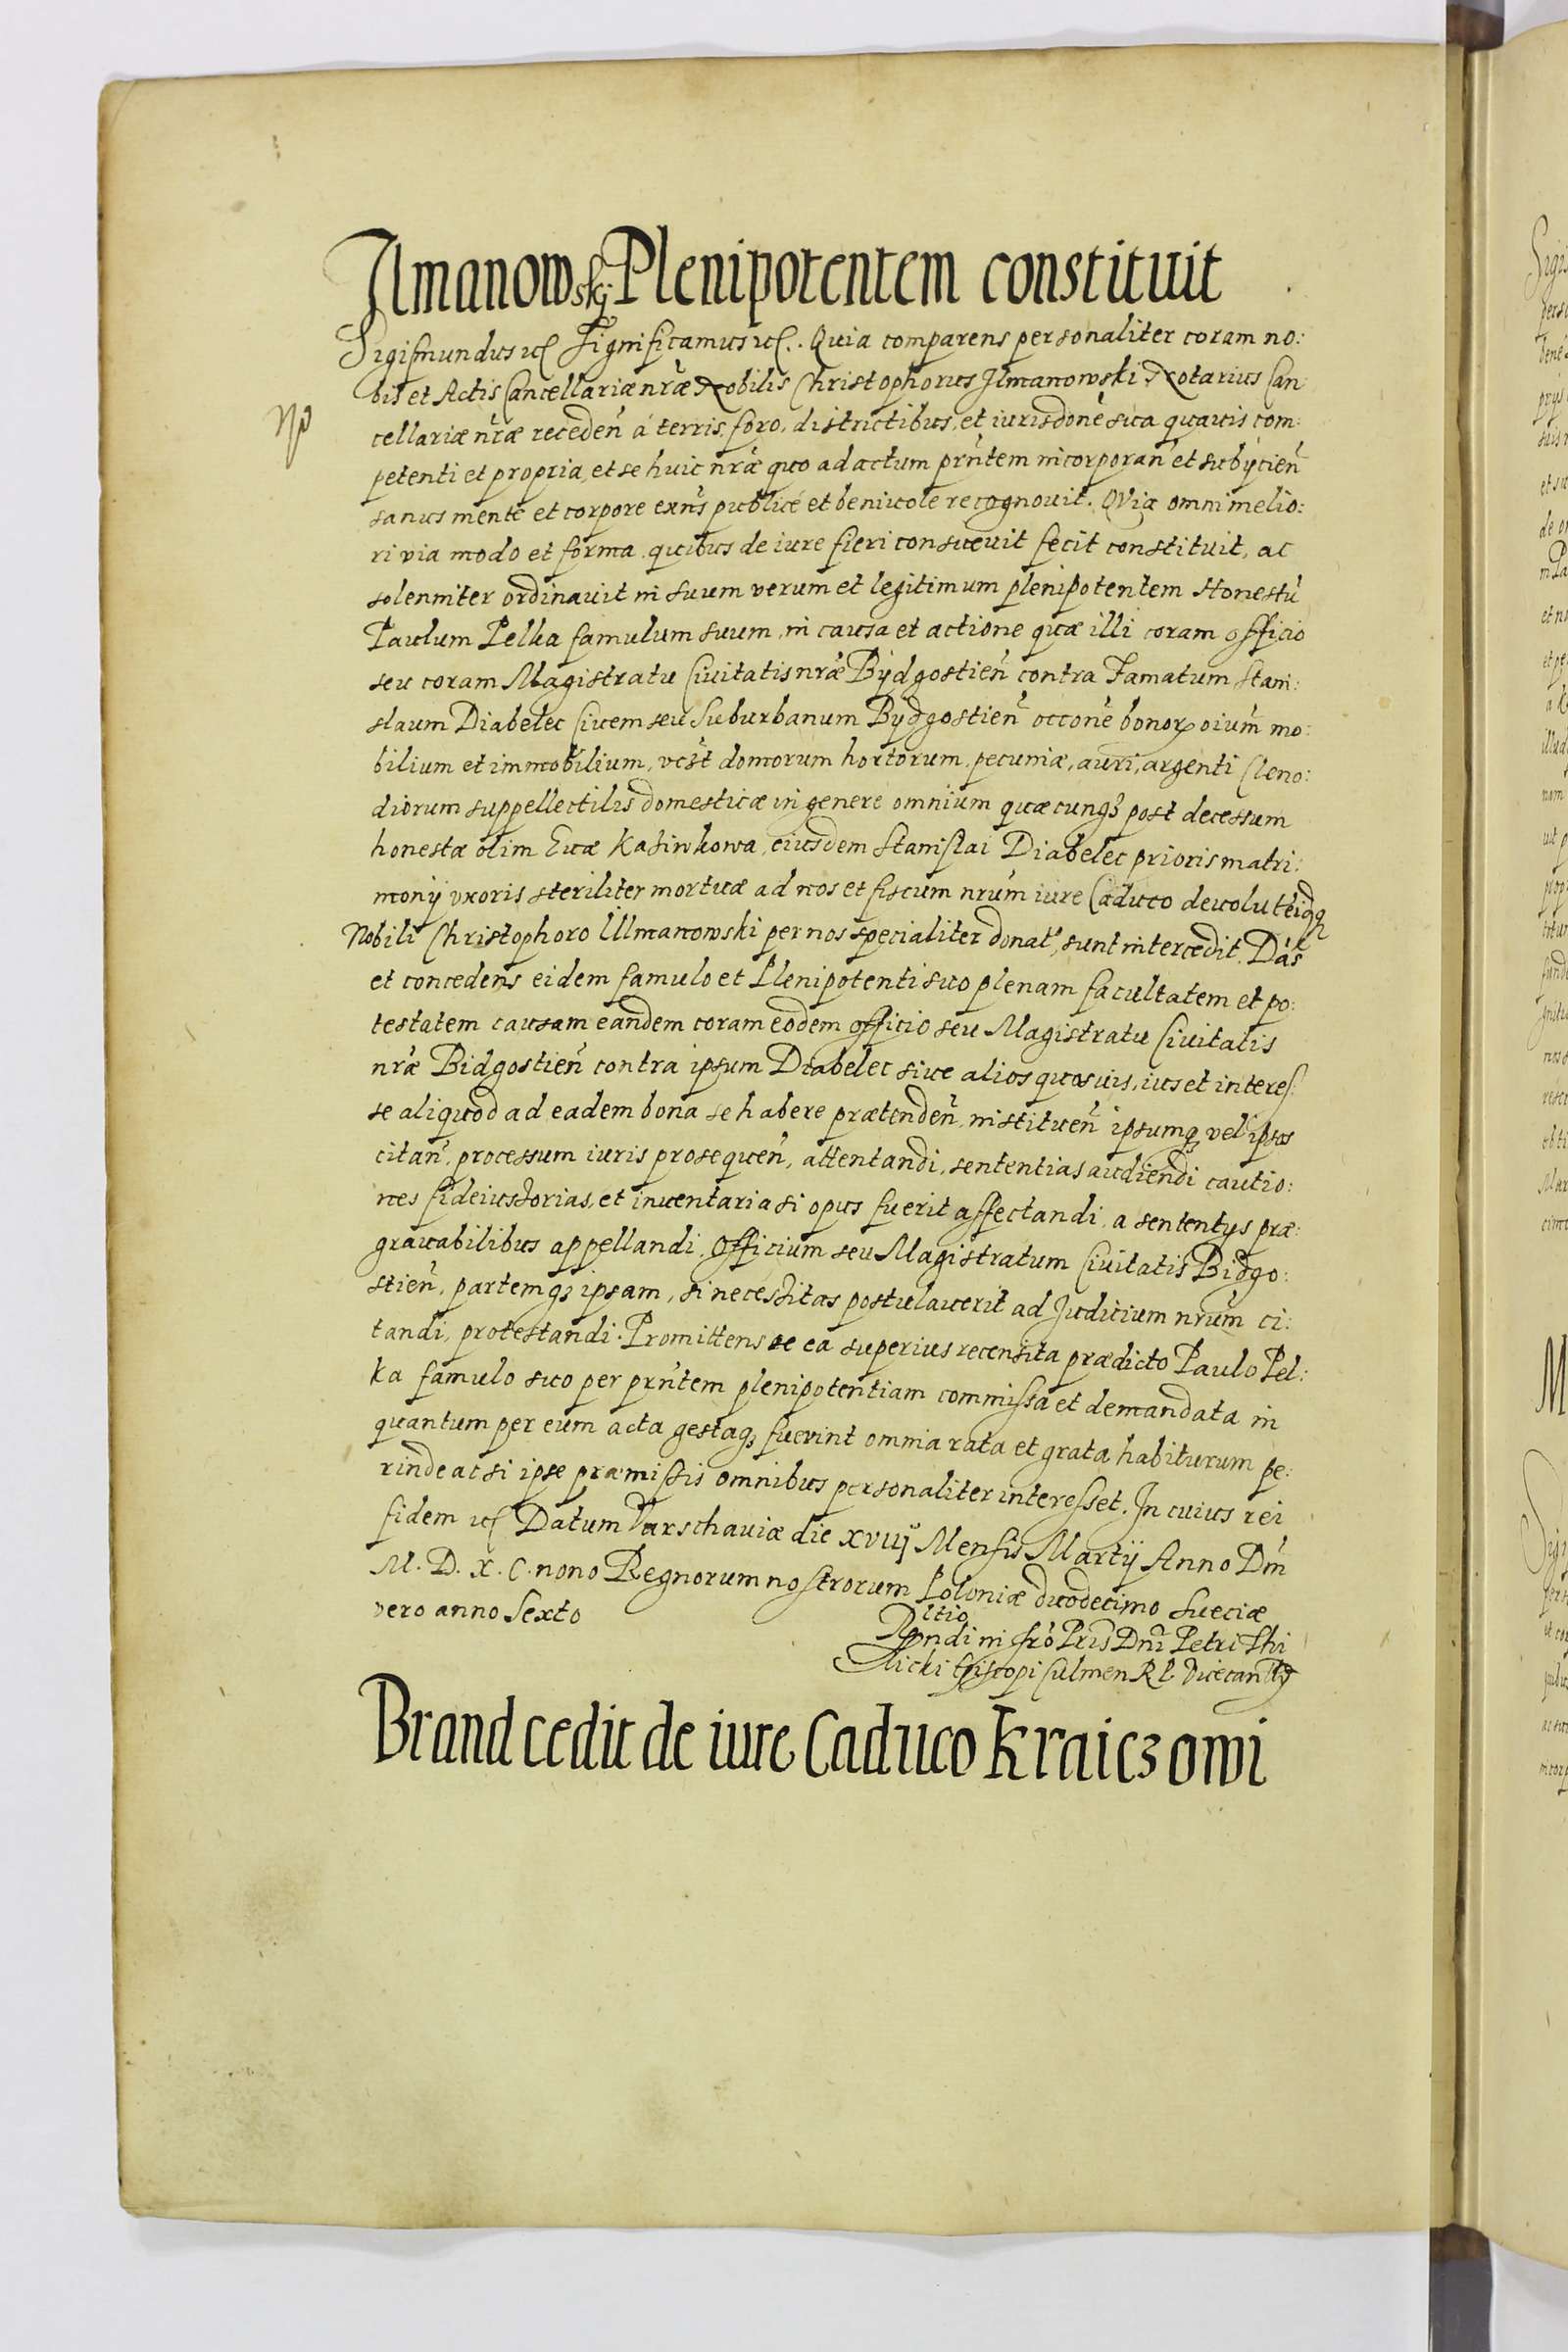 Ilmanowskÿ Plenipotentem constituit
Sigismundus etc Significamus etc. Quia comparens personaliter coram no:
bis et Actis Cancellariæ nr̃æ Nobilis Christophorus Ilmanowski Notarius Can
cellariæ nr̃æ receden̄ á terris, foro, districtibus, et iurisdonē sua quauis com:
petenti et propria, et se huic nr̃æ quo ad actum prn̄tem incorporan̄ et subÿcien̄
sanus mente et corpore exn̄s publicé et beniuole recognouit. QVia omni melio:
ri via modo et forma quibus de iure fieri consueuit fecit constituit, ac
solenniter ordinauit in suum verum et legitimum plenipotentem Honestū
Paulum Pelka famulum suum, in causa et actione quæ illi coram officio
seu coram Magistratu Ciuitatis nr̃æ Bÿdgostien̄ contra Famatum Stani:
slaum Diabelec Ciuem seu Suburbanum Bÿdgostien̄ occōne bonorꝝ oium̄ mo:
bilium et immobilium, vc̄t domorum hortorum, pecuniæ, auri, argenti Cleno:
diorum suppellectilis domesticæ in genere omnium quæcunqꝫ post decessum
honestæ olim Euæ Kasinkowa, eiusdem Stanislai Diabelec prioris matri:
monÿ vxoris steriliter mortuæ ad nos et fiscum nrūm iure Caduco deuolut eidqꝫ
Nobili Christophoro Ulmanowski per nos specialiter donat, sunt intercedit. Dās
et concedens eidem famulo et Plenipotenti suo plenam facultatem et po:
testatem causam eandem coram eodem officio seu Magistratu Ciuitatis
nr̃æ Bidgostien̄ contra ipsum Diabelec siue alios quosuis, ius et interes:
se aliquod ad eadem bona se habere prætenden̄, instituen̄ ipsumqꝫ vel ipsos
citan̄, processum iuris prosequen̄, attentandi, sententias audiendi cautio:
nes fideiussorias, et inuentaria si opus fuerit affectandi, a sententÿs præ:
grauabilibus appellandi, Officium seu Magistratum Ciuitatis Bidgo:
stien̄, partemqꝫ ipsam, si necessitas postulauerit ad Judicium nrūm ci:
tandi, protestandi. Promittens se ea superius recensita prædicto Paulo Pel:
ka famulo suo per prn̄tem plenipotentiam commissa et demandata in
quantum per eum acta gestaqꝫ fuerint omnia rata et grata habiturum pe:
rinde ac si ipse præmissis omnibus personaliter interesset. In cuius rei
fidem etc Datum Varschauiæ die xviij Mensis Martÿ Anno Dn̄i
M. D. X. C. nono Regnorum nostrorum Poloniæ duodecimo Sueciæ
vero anno Sexto
Rltio
Rndi in χr̄o Pris Dn̄i Petri Thi
licki Episcopi Culmen R. P. Vicecan
Brand cedit de iure Caduco Kraiczowi